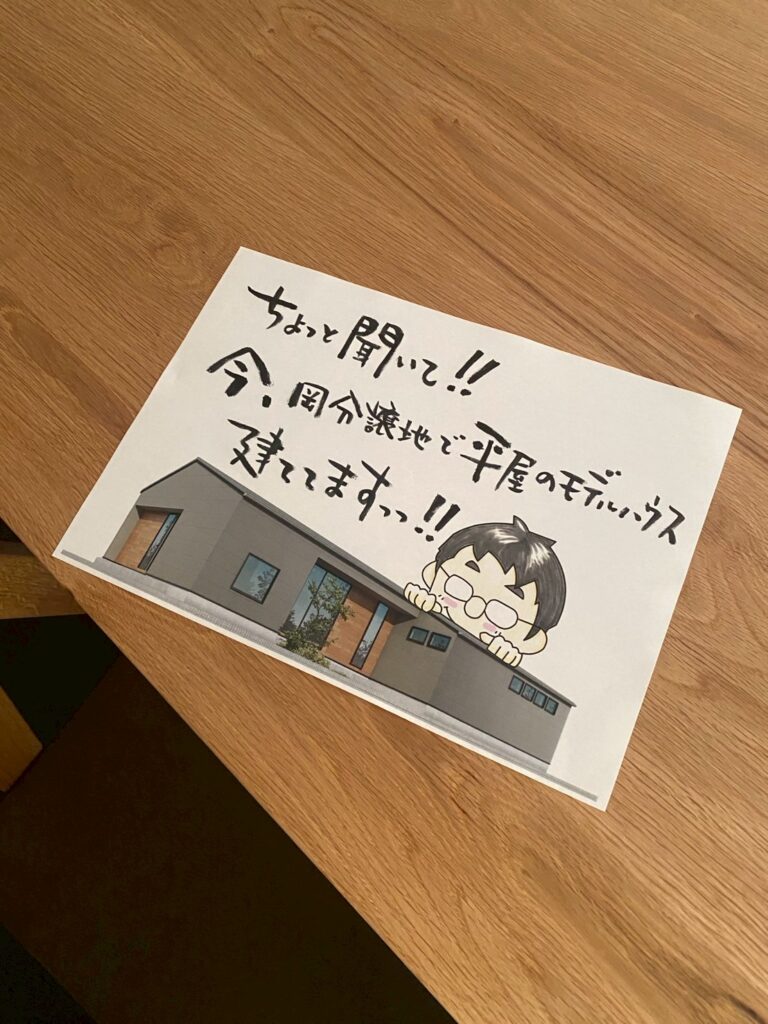 ちょっと聞いて!!
今、岡分譲地で平屋のモデルハウス
建ててますっっ!!